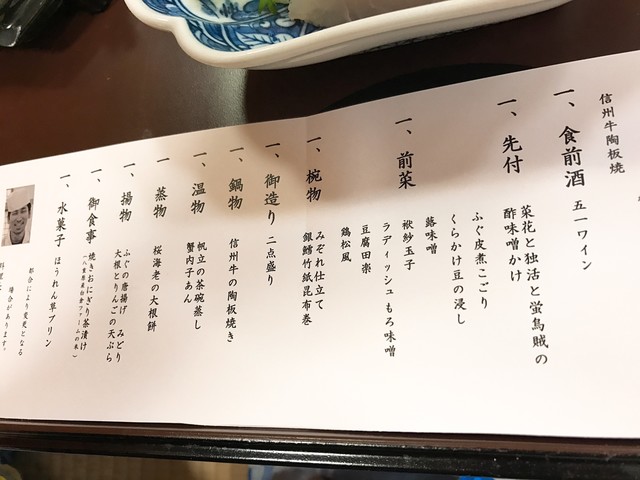 信州牛陶板焼
一、食前酒 五一ワイン
一、先付 菜花と独活と蛍烏賊の
酢味噌かけ
ふぐ皮煮こごり
くらかけ豆の浸し
一、前菜 蕗味噌
袱紗玉子
ラディッシュもろ味噌
豆腐田楽
鶏松風
一、椀物 みぞれ仕立て
銀鱈竹紙昆布巻
一、御造り 二点盛り
一、鍋物 信州牛の陶板焼き
一、温物 帆立の茶碗蒸し
蟹内子あん
一、蒸物 桜海老の大根餅
一、揚物 ふぐの唐揚げ みどり
大根とりんごの天ぷら
一、御食事 焼きおにぎり茶漬け
一、水菓子 ほうれん草プリン
都合により変更となる
場合があります。
料理